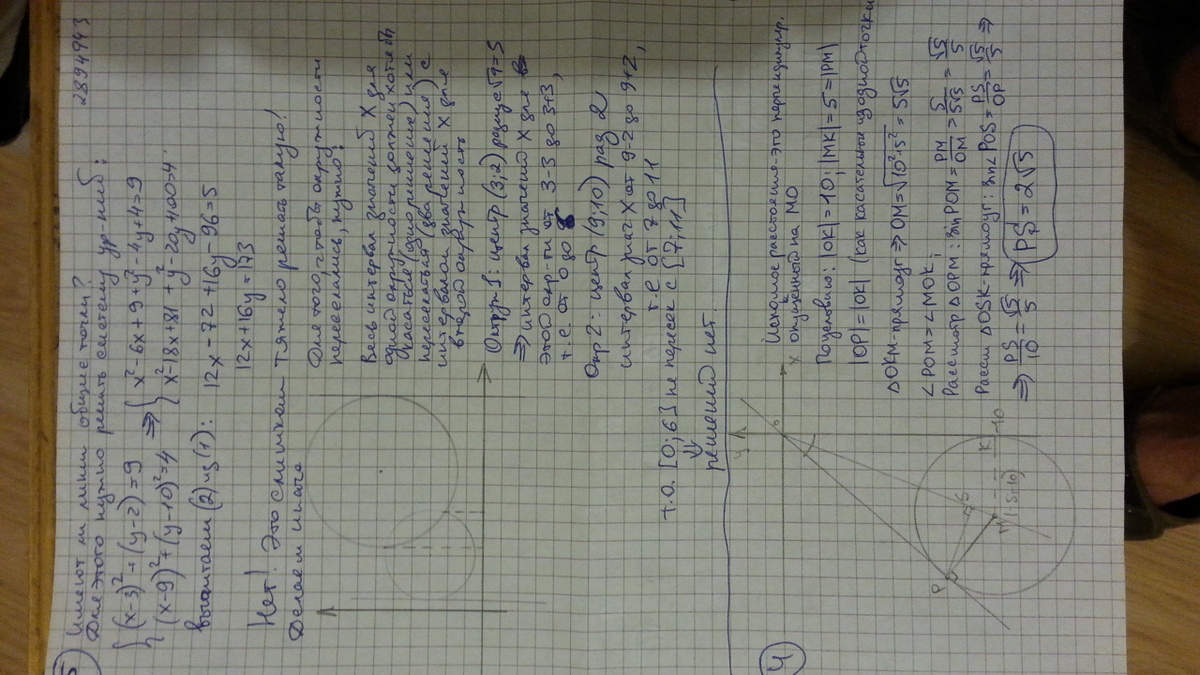 5) Имеют ли линии общие точки? 2894943
Для этого нужно решить систему ур-ний:
{ (x-3)² + (y-2) = 9 ⇒ { x² - 6x + 9 + y² - 4y + 4 = 9
(x-9)² + (y-10)² = 4 x² - 18x + 81 + y² - 20y + 100 = 4
вычитаем (2) из (1): 12x - 72 + 16y - 96 = 5
12x + 16y = 173
Нет! Это слишком тяжело решать такую!
Делаем иначе
Для того, чтобы окружности
пересекались, нужно:
Весь интервал значений X для
одной окружности должен хотя бы
касаться (одно решение) или
пересекаться (два решения) с
интервалом значений X для
второй окружность
Окруж 1: центр (3;2) радиус √9=5
⇒ интервал значений X для
этой окр-ти от 3-3 до 3+3,
т.е. от 0 до 6
Окр 2: центр (9;10) рад 2
интервал знач X от 9-2 до 9+2,
т.е от 7 до 11
т.о. [0;6] не перес с [7;11]
⇓
решений нет.
4)
y
x
0
P
S
M
(-5;-10)
K
-10
Искомое расстояние-это перпендикуляр.
опущенный на MO
По условию: |OK|=10; |MK|=5=|PM|
|OP|=|OK| (как касательные из одной точки
△OKM-прямоуг ⇒ OM=√10²+5² = 5√5
∠POM=∠MOK;
Рассмотр △OPM: sin POM = PM/OM = 5/5√5 = √5/5
Рассм △OSK-прямоуг: sin∠POS = PS/OP = √5/5 ⇒
⇒ PS/10 = √5/5 ⇒ PS = 2√5